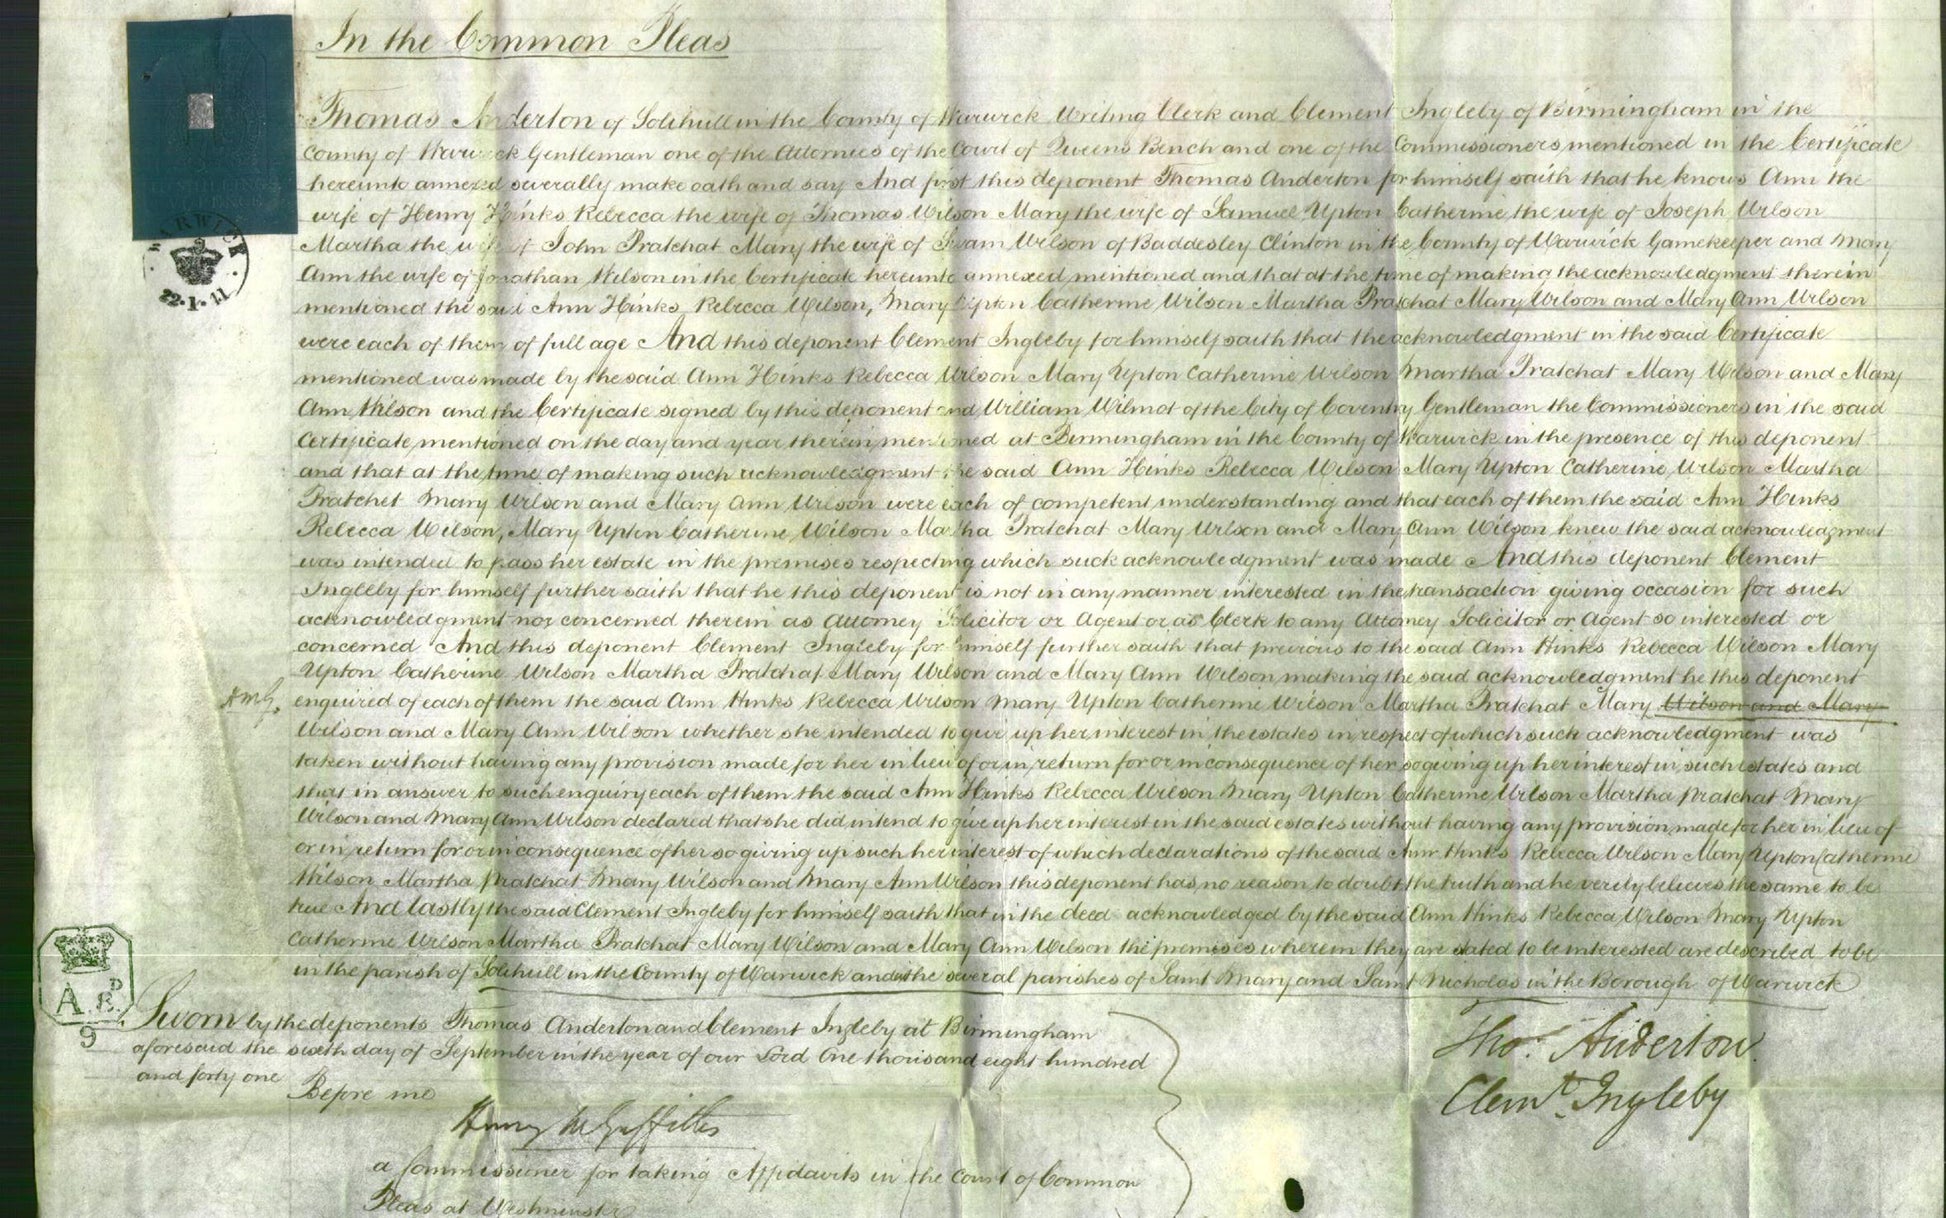 In the Common Pleas
Thomas Anderton of Solihull in the County of Warwick Writing Clerk and Clement Ingleby of Birmingham in the
County of Warwick Gentleman one of the Attornies of the Court of Queens Bench and one of the Commissioners mentioned in the Certificate
hereunto annexed severally make oath and say And first this deponent Thomas Anderton for himself saith that he knows Ann the
wife of Henry Hinks Rebecca the wife of Thomas Wilson Mary the wife of Samuel Upton Catherine the wife of Joseph Wilson
Martha the wife of John Pratchat Mary the wife of Swam Wilson of Baddesley Clinton in the County of Warwick Gamekeeper and Mary
Ann the wife of Jonathan Wilson in the Certificate hereunto annexed mentioned and that at the time of making the acknowledgment therein
mentioned the said Ann Hinks Rebecca Wilson, Mary Upton Catherine Wilson Martha Pratchat Mary Wilson and Mary Ann Wilson
were each of them of full age And this deponent Clement Ingleby for himself saith that the acknowledgment in the said Certificate
mentioned was made by the said Ann Hinks Rebecca Wilson Mary Upton Catherine Wilson Martha Pratchat Mary Wilson and Mary
Ann Wilson and the Certificate signed by this deponent and William Wilmot of the City of Coventry Gentleman the Commissioners in the said
Certificate mentioned on the day and year therein mentioned at Birmingham in the County of Warwick in the presence of this deponent
and that at the time of making such acknowledgment the said Ann Hinks Rebecca Wilson Mary Upton Catherine Wilson Martha
Pratchet Mary Wilson and Mary Ann Wilson were each of competent understanding and that each of them the said Ann Hinks
Rebecca Wilson, Mary Upton Catherine Wilson Martha Pratchat Mary Wilson and Mary Ann Wilson knew the said acknowledgment
was intended to pass her estate in the premises respecting which such acknowledgment was made And this deponent Clement
Ingleby for himself further saith that he this deponent is not in any manner interested in the transaction giving occasion for such
acknowledgment nor concerned therein as Attorney Solicitor or Agent or as Clerk to any Attorney Solicitor or Agent so interested or
concerned And this deponent Clement Ingleby for himself further saith that previous to the said Ann Hinks Rebecca Wilson Mary
Upton Catherine Wilson Martha Pratchat Mary Wilson and Mary Ann Wilson making the said acknowledgment he this deponent
HMG. enquired of each of them the said Ann Hinks Rebecca Wilson Mary Upton Catherine Wilson Martha Pratchat Mary Wilson and Mary
Wilson and Mary Ann Wilson whether she intended to give up her interest in the estates in respect of which such acknowledgment was
taken without having any provision made for her in lieu of or in return for or in consequence of her so giving up her interest in such estates and
that in answer to such enquiry each of them the said Ann Hinks Rebecca Wilson Mary Upton Catherine Wilson Martha Pratchat Mary
Wilson and Mary Ann Wilson declared that she did intend to give up her interest in the said estates without having any provision made for her in lieu of
or in return for or in consequence of her so giving up such her interest of which declarations of the said Ann Hinks Rebecca Wilson Mary Upton Catherine
Wilson Martha Pratchat Mary Wilson and Mary Ann Wilson this deponent has no reason to doubt the truth and he verily believes the same to be
true And lastly the said Clement Ingleby for himself saith that in the deed acknowledged by the said Ann Hinks Rebecca Wilson Mary Upton
Catherine Wilson Martha Pratchat Mary Wilson and Mary Ann Wilson the premises wherein they are stated to be interested are described to be
in the parish of Solihull in the County of Warwick and in the several parishes of Saint Mary and Saint Nicholas in the Borough of Warwick
Sworn by the deponents Thomas Anderton and Clement Ingleby at Birmingham
aforesaid the sixth day of September in the year of our Lord One thousand eight hundred
and forty one
Before me
Henry M Griffiths
a Commissioner for taking Affidavits in the Court of Common
Pleas at Westminster
Thos. Anderton
Clemt. Ingleby
WARWICK
22.1.41
A. R.D
9